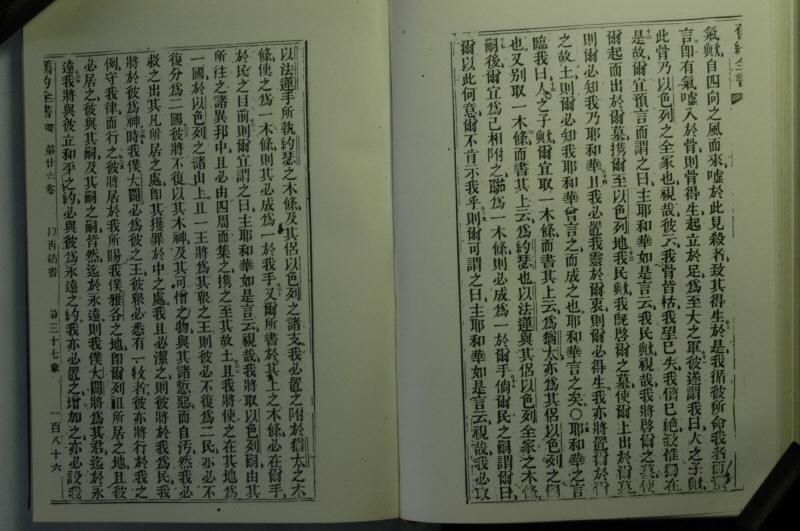 舊約全書
氣歟自四向之風而來噓於此見殺者致其得生於是我循彼所命我者而預
言即有氣噓入於骨則骨得生起立於足為至大之軍彼遂謂我曰人之子歟
此骨乃以色列之全家也視哉彼云我骨皆枯我望已失我儕已絕故惟獨在
是故爾宜預言而謂之曰主耶和華如是言云我民歟視哉我將啓爾之墓使
爾起而出於爾墓携爾至以色列地我民歟我既啓爾之墓使爾上出於爾墓
則爾必知我乃耶和華且我必置我靈於爾衷則爾必得生我亦將置爾於爾
之故土則爾必知我耶和華曾言之而成之也耶和華言之矣〇耶和華之言
臨我曰人之子歟爾宜取一木條而書其上云為猶太亦為其侶以色列之裔
也又别取一木條而書其上云為約瑟也以法蓮與其侶以色列全家之木條
嗣後爾宜為己相附之聯為一木條則必成為一於爾手倘爾民之嗣謂爾曰
爾以此何意爾不肯示我乎則爾可謂之曰主耶和華如是言云視哉我必取
以法蓮手所執約瑟之木條及其侶以色列之諸支我必置之附於猶太之木
條使之為一木條則其必成為一於我手又爾所書於其上之木條必在爾手
於民之目前則爾宜謂之曰主耶和華如是言云視哉我將取以色列嗣由其
所往之諸異邦中且必由四周而集之携之至其故土且我將使之在其地為
一國於以色列之諸山上且一王將為其衆之王則彼必不復為二民亦必不
復分為二國彼將不復以其木神及其可憎之物與其諸愆惡而自汚然我必
救之出其凡所居之處即其獲罪於中之處我且必潔之則彼將於我為民我
將於彼為神時我僕大闢必為彼之王彼衆必悉有一牧者彼亦將行於我之
例守我律而行之彼將居於我所賜我僕雅各之地即爾列祖所居之地且彼
必居之彼與其嗣及其嗣之嗣皆然迄於永遠則我僕大闢將為其君迄於永
遠我將與彼立和平之約必與彼為永遠之約我亦必置之增加之亦必設我
舊約全書 第廿六卷 以西結書 第三十七章 一百八十六